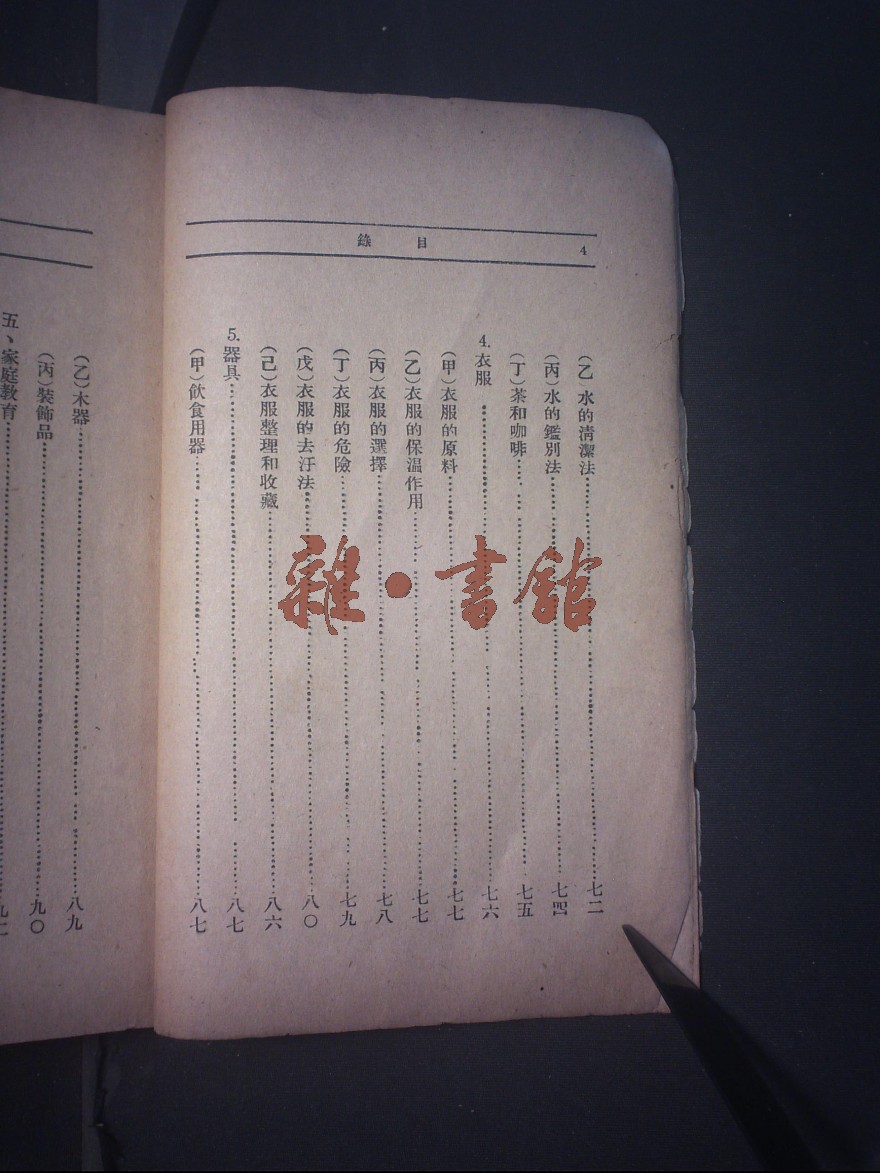 目錄 4
(乙)水的清潔法……七二
(丙)水的鑑別法……七四
(丁)茶和咖啡……七五
4.衣服……七六
(甲)衣服的原料……七七
(乙)衣服的保温作用……七七
(丙)衣服的選擇……七八
(丁)衣服的危險……七九
(戊)衣服的去汙法……八〇
(己)衣服整理和收藏……八六
5.器具……八七
(甲)飲食用器……八七
(乙)木器……八九
(丙)裝飾品……九〇
五、家庭教育……
雜·書館